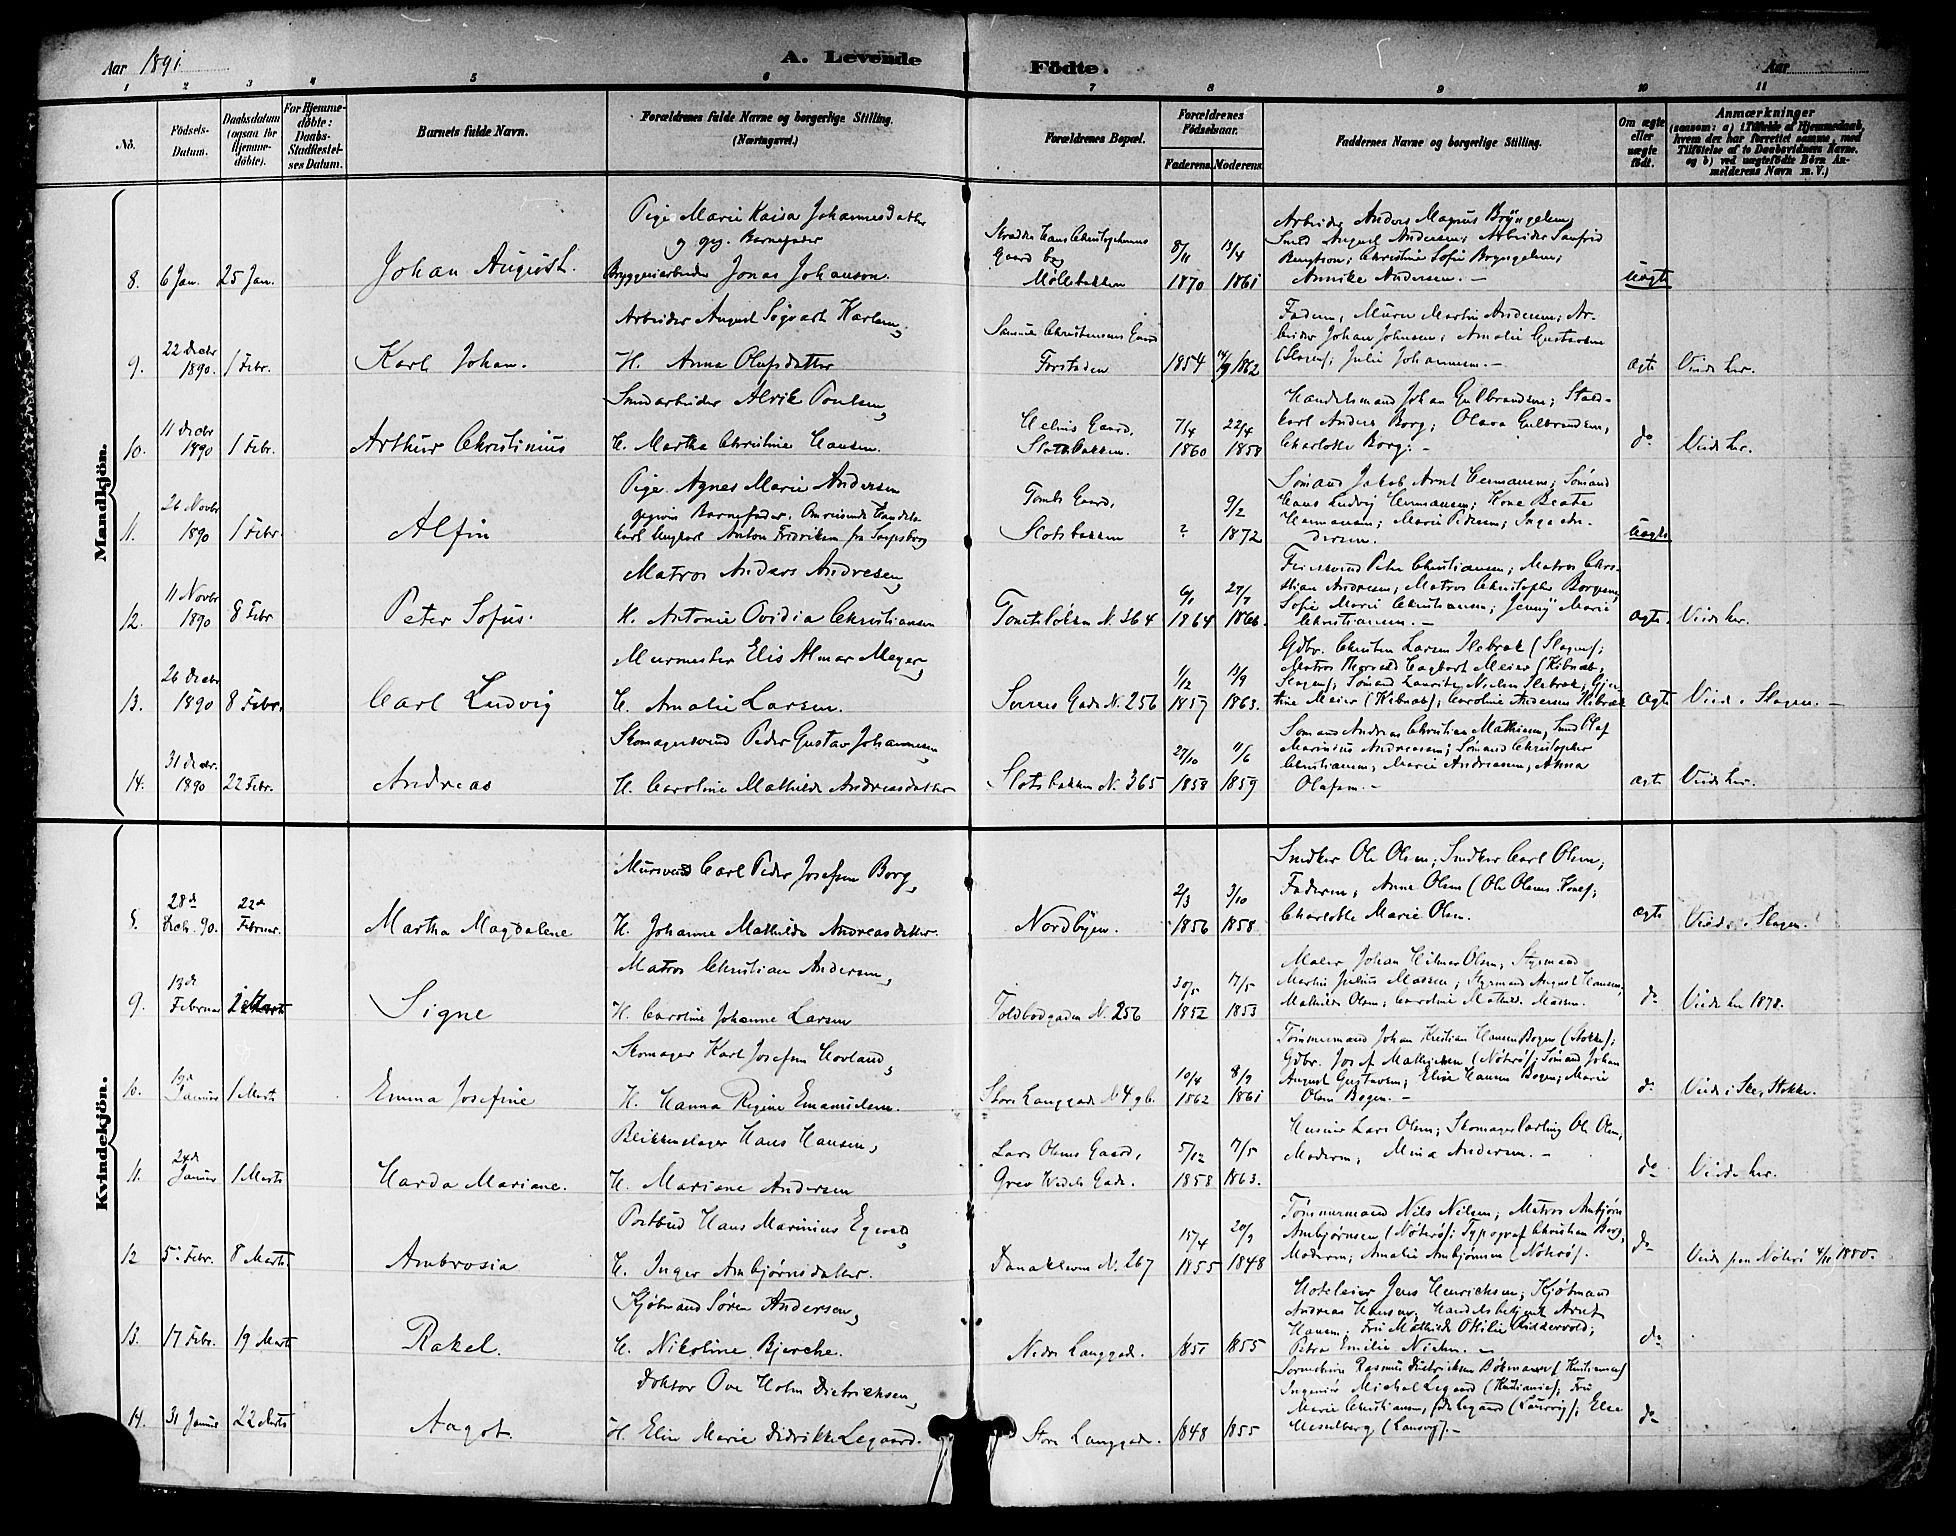 Aar 1891
A. Levende Fødte.
Aar
1 2 3 4 5 6 7 8 9 10 11
No.
Fødsels-Datum.
Daabsdatum (ogsaa for Hjemme-døbte).
For Hjemme-døbte: Daabs-Stadfæstel-ses Datum.
Barnets fulde Navn.
Forældrenes fulde Navne og borgerlige Stilling.
(Næringsvei.)
Forældrenes Bopæl.
Forældrenes Fødselsaar.
Faderens. Moderens.
Faddernes Navne og borgerlige Stilling.
Om ægte eller uægte født.
Anmærkninger
(saasom: a) i Tilfælde af Hjemmedaab,
hvem der har forrettet samme, med
Tilføielse af to Daabsvidners Navne,
og b) ved uægtefødte Børn An-
melderens Navn m. V.)
Mandkjøn.
Pige Marie Kaisa Johannesdatter
og Barnefader
8. 6 Jan. 25 Jan. Johan August. Bryggeriarbeider Jonas Johanson.
Gaard
Møllebakken
8/11 1870 13/4 1861
Arbeider Anders Magnus Bryngelsen,
Smed August Andersen; Arbeider Sanfrid
Bengtson; Christine Sofie Bryngelsen;
Annike Andersen. —
uægte
Arbeider August Sigvart Karlsen,
9. 22 Decbr 1890. 1 Febr. Karl Johan. H. Anna Olufsdatter
Samuel Christensens Gaard
Forstaden
1854 1862
Faderen, Murer Martin Andersen; Ar-
beider Johan Johnsen; Amalie Gustavsen
(Slagen); Julie Johannesen. —
ægte Viede her.
Smedarbeider Alrik Poulsen,
10. 11 Decbr 1890 1 Febr. Arthur Christinius H. Martha Christine Hansen.
Gaard,
Slotsbakken.
7/4 1860 22/4 1858
Handelsmand Johan Gulbrandsen; Stald-
karl Anders Borg; Olava Gulbrandsen,
Charlotte Borg. —
do Viede her.
Pige Agnes Marie Andersen
opgiven Barnefader, Omreisende Handels-
11. 26 Novbr 1890 1 Febr. Alfin karl Ungkarl Anton Fredriksen fra Sarpsborg
Tombs Gaard,
Slotsbakken
? 9/2 1872
Sømand Jakob Arnt Hermansen; Sømand
Hans Ludvig Hermansen; Kone Beate
Hermansen; Marie Pedersen; Inga An-
dersen.
uægte
Matros Anders Andresen,
12. 11 Novbr 1890 8 Febr Peter Sofus. H. Antonie Ovidia Christiansen
N. 364
6/1 1864 27/7 1866.
Peter Christiansen; Matros Chri-
stian Andresen; Matros Christopher Borgesen;
Sofie Marie Christiansen; Jenny Marie
Christiansen. —
ægte. Viede her.
Murmester Elis Almar Meyer,
13. 26 Decbr 1890 8 Febr. Carl Ludvig H. Amalie Larsen.
Gade N. 256
1/12 1857 13/9 1863.
Gdbr. Christen Larsen Ilebrek (Slagen);
Matros Thorvald Dagbart Meier
Slagen); Sømand Lauritz Nielsen Ilebrek; Gjer-
tine Meier; Caroline Andersen Ilebrek
ægte Viede i Slagen. —
Skomagersvend Peder Gustav Johannesen,
14. 31 Decbr. 1890 22 Febr. Andreas H. Caroline Mathilde Andreasdatter
Slotsbakken N. 365
27/10 1858 11/6 1859
Sømand Andreas Christian Mathisen, Smed Olaf
Marinius Andreasen; Sømand Christopher
Christiansen, Marie Andreasen, Anna
Olafsen. —
ægte Viede her.
Kvindekjøn.
Mursvend Carl Peder Josefsen Borg,
8. 28de Decb. 90. 22de Februar. Martha Magdalene H. Johanne Mathilde Andreasdatter.
Nordbyen.
2/3 1856 3/10 1858.
Snedker Ole Olsen; Snedker Carl Olsen;
Faderen; Anne Olsen (Ole Olsens Kone);
Charlotte Marie Olsen.
ægte Viede i Slagen.
Matros Christian Andersen,
9. 13de Februar 1 Marts Signe H. Caroline Johanne Larsen
Toldbodgaden N. 256
30/5 1852 17/5 1853
Maler Johan Hilmer Olsen, Styrmand
Martin Julius Massen; Styrmand August Hansen;
Mathilde Olsen; Caroline Mathilde Massen.
do Viede her 1878.
Skomager Karl Josefsen Hovland,
10. Januar 1 Marts Emma Josefine H. Hanna Regine Emanuelsen.
Store Langgade N. 49 b.
10/4 1862 8/9 1861
Tømmermand Johan Kristian Hansen Bogen (Stokke);
Gdbr. Josef Mathiesen (Nøterø); Sømand Johan
August Gustavsen; Elise Hansen Bogen; Marie
Olsen Bogen. —
do Viede i Stokke.
Blikkenslager Hans Hansen,
11. 24de Januar 1 Marts Harda Mariane. H. Mariane Andersen
Lars Olsens Gaard,
Grev Wedels Gade.
5/12 1858 7/5 1863.
Lars Olsen; Skomager Ole Olsen,
Moderen; Mina Andersen. —
do Viede her.
Postbud Hans Marinius Egvold,
12 5. Febr. 8 Marts Ambrosia H. Inger Ambjørnsdatter.
Danekleven N. 267
15/4 1855 20/9 1848
Tømmermand Nils Nilsen; Matros Ambjørn
Ambjørnsen (Nøterø); Typograf Christian Borg,
Moderen; Amalie Ambjørnsen (Nøterø).
do Viede paa Nøterø 4/11 1880.
Kjøbmand Søren Andersen,
13. 17 Febr. 19 Marts Rakel. H. Nikoline Bjerche.
Nedre Langgade.
1851 1855
Hoteleier Jens Henrichsen; Kjøbmand
Andreas Hansen; Handelsbetjent Arnt
Hansen; Fru Mathilde Ottilie Riddervold;
Petra Emilie Nielsen. —
do
Doktor Ove Holm Dietrichsen,
14. 31 Januar 22 Marts Aagot. H. Elise Marie Didrikke Legaard.
Store Langgade.
1848 1855
Rasmus Dietrichsen
Ingeniør Michael Legaard (Kristiania); Fru
Marie Christiansen, født Legaard (Laurvig); Elise
Hesselberg (Laurvig). —
do